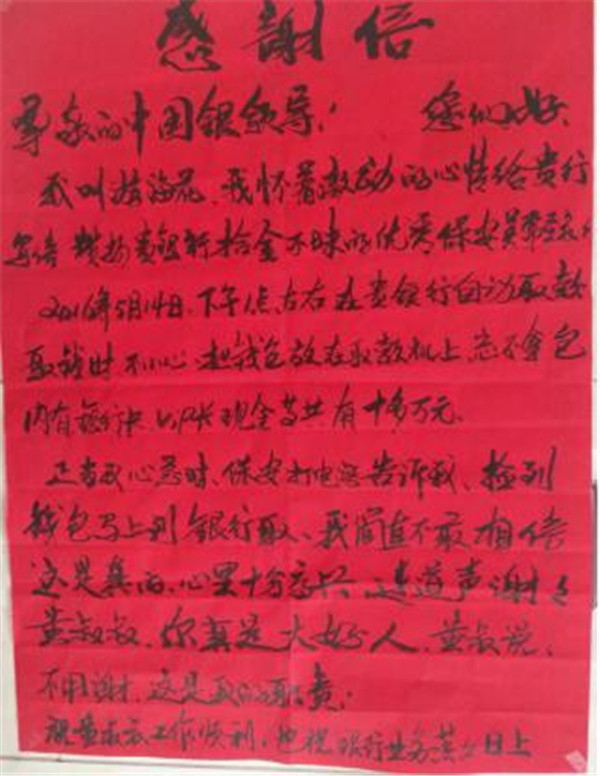 感謝信
尊敬的中国银领导： 您们好、
我叫海花、我怀着激动的心情给贵行
写信 赞扬贵银行拾金不昧的优秀保安员
2016年5月14日、下午1点左右在贵银行自动取款
取钱时 不小心 把钱包放在取款机上、忘不拿包
内有银行 现金等共有十多万元、
正当我心急时、保安打电话告诉我、捡到
钱包马上到银行取、我简直不敢相信
这是真的、心里十分高兴 连道声谢谢
黄叔叔、你真是大好人、黄叔说、
不用谢、这是我的职责；
祝黄叔叔工作顺利，也祝银行业务蒸蒸日上